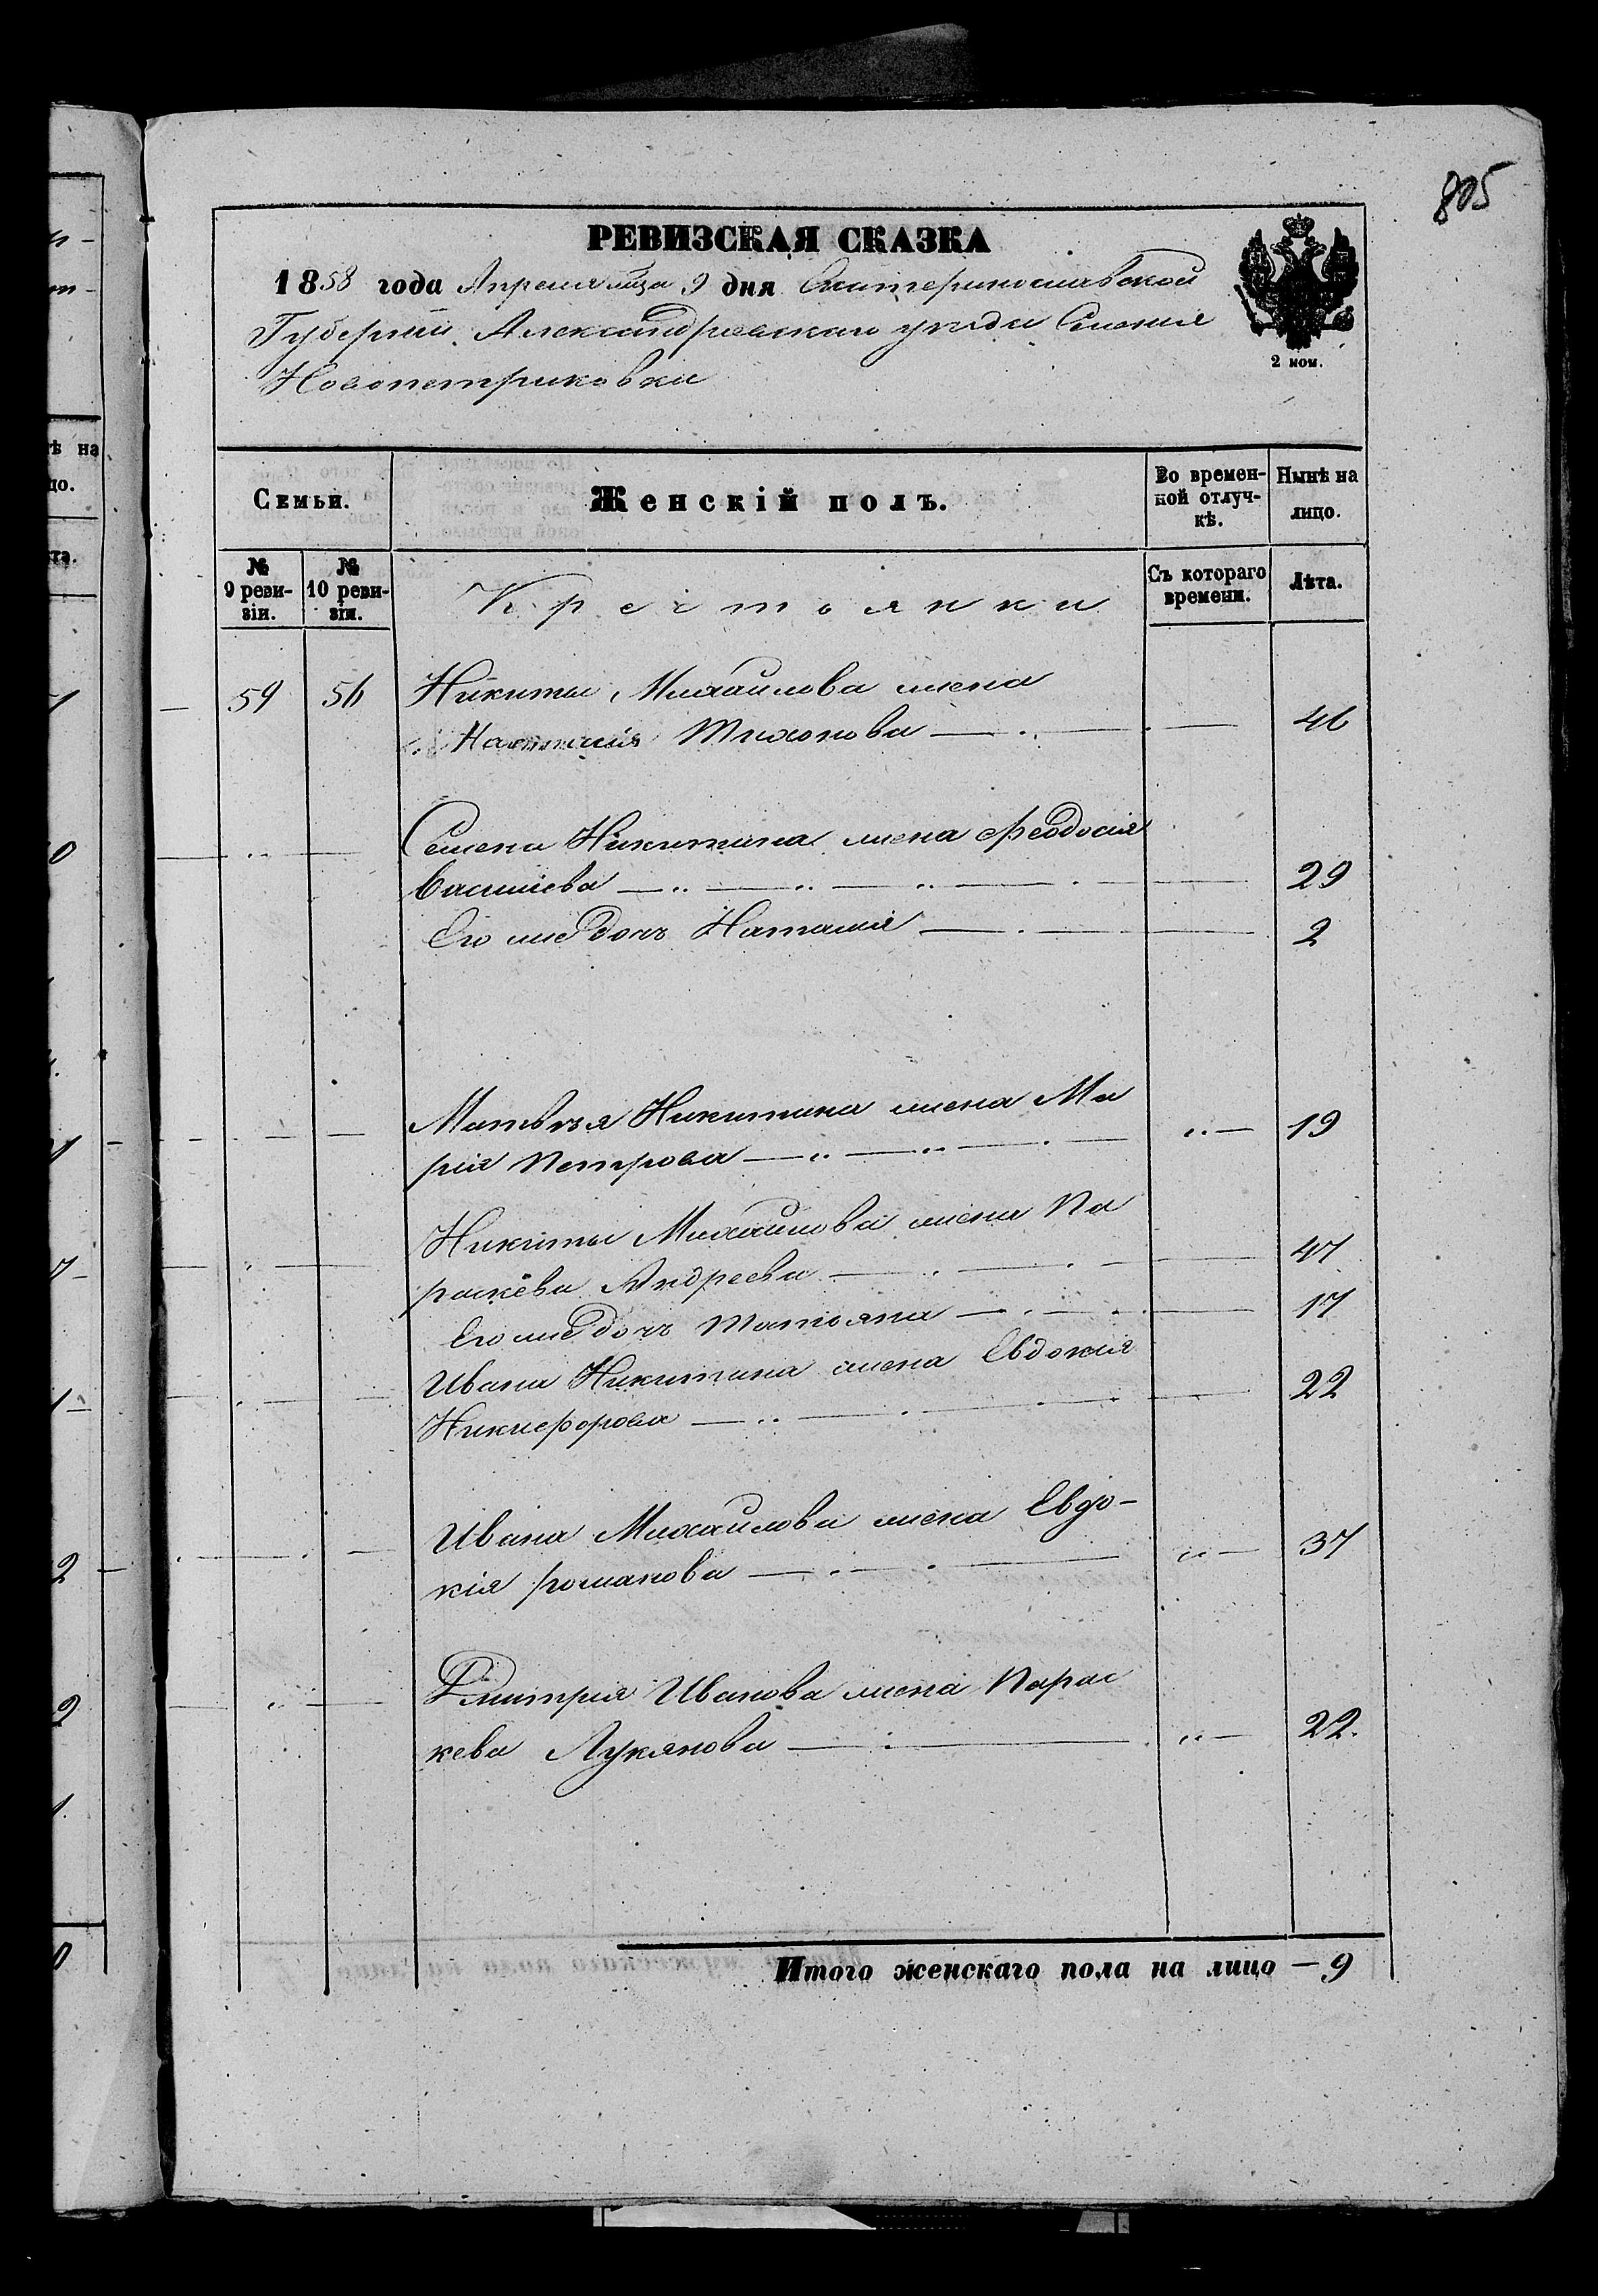 805
РЕВИЗСКАЯ СКАЗКА
1858 года Апреля мца 9 дня Екатеринославской
Губернии Александровскаго уезда Селения
Новопетриковки
2 ком.
Семьи.
Женскій полъ.
Во времен-
ной отлуч-
кѣ.
Нынѣ на
лицо.
№
9 реви-
зіи.
№
10 реви-
зіи.
Крестьянки
Съ котораго
времени.
Лѣта.
59 56 Никиты Михайлова жена
Тихонова 46
Семена Никитина жена Феодосія
Василиева 29
Его же дочь Наталия 2
Матвѣя Никитина жена Ма
рія Петрова 19
Никиты Михайлова жена Па
раскева Андреева 47
Его же дочь Татьяна 17
Ивана Никитина жена Евдокия
Никифорова 22
Ивана Михайлова жена Евдо-
кія романова 37
Дмитрия Иванова жена Парас
кева Лукянова 22.
Итого женскаго пола на лицо — 9